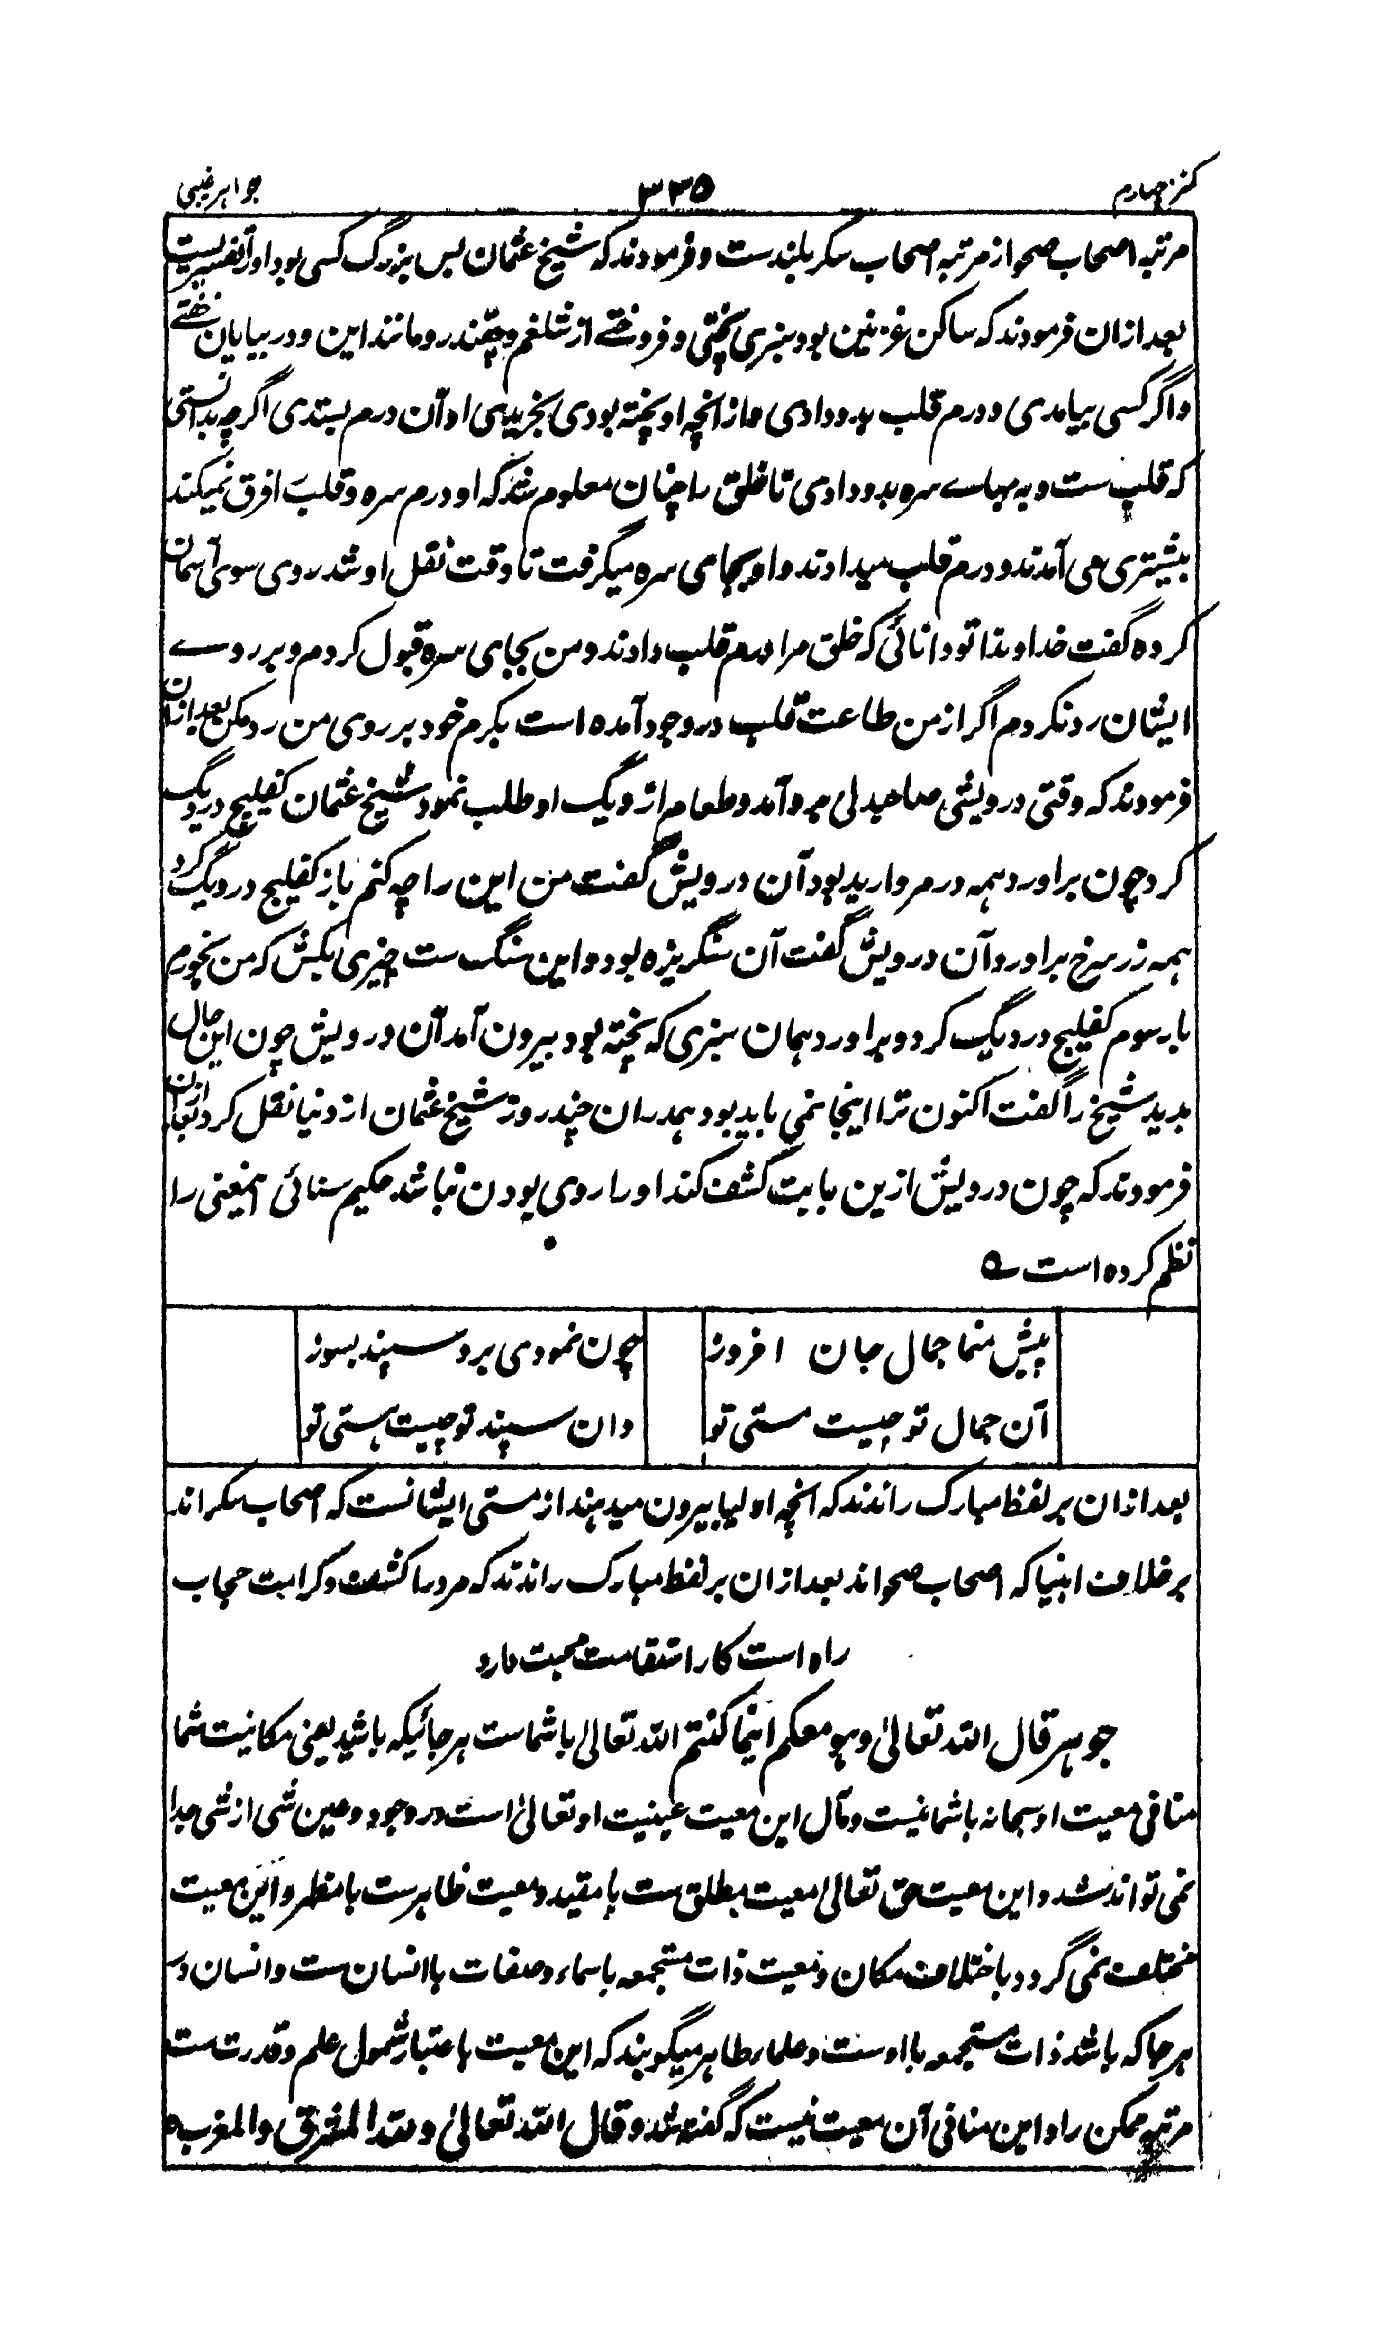 کنز چهارم ۳۳۵ جواهر غیبی
مرتبه اصحاب صحو از مرتبه اصحاب سکر بلندست و فرمودند که شیخ عثمان بس بزرگ کسی بود او را تفسیریست
بعد ازان فرمودند که ساکن غزنین بود سبزی پختی و فروختے از شلغم و چقندر و مانند این و در بیابان پختے
و اگر کسی بیامدی و درم قلب بدو دادی و از انچه او پخته بودی بخریدی او آن درم بستدی اگرچه بدانستی
که قلب ست و به بهاے سره بدو دادی تا خلق را چنان معلوم شد که او درم سره و قلب را فرق نمیکند
بیشتری می آمدند و درم قلب میدادند و او بجای سره میگرفت تا وقت نقل او شد روی سوی آسمان
کرده گفت خداوندا تو دانائی که خلق مرا درم قلب دادند و من بجای سره قبول کردم و بر روے
ایشان رد نکردم اگر از من طاعت قلب در وجود آمده است بکرم خود بر روی من رد مکن بعد ازان
فرمودند که وقتی درویشی صاحبدلی برو آمد و طعام از دیگ او طلب نمود شیخ عثمان کفلیچ در دیگ
کرد چون براورد همه در مروارید بود آن درویش گفت من این را چه کنم باز کفلیچ در دیگ کرد
همه زر سرخ براورد آن درویش گفت آن سنگریزه بود و این سنگ ست چیزی بکش که من بخورم
بار سوم کفلیچ در دیگ کرد و براورد همان سبزی که پخته بود بیرون آمد آن درویش چون این حال
بدید شیخ را گفت اکنون ترا اینجا نمی باید بود همدران چند روز شیخ عثمان از دنیا نقل کرد بعد ازان
فرمودند که چون درویش ازین بابت کشف کند او را روی بودن نباشد حکیم سنائی اینمعنی را
نظم کرده است ے
پیش منما جمال جان افروز چون نمودی برو سپند بسوز
آن جمال تو چیست مستی تو دان سپند تو چیست هستی تو
بعد ازان بر لفظ مبارک راندند که انچه اولیا بیرون میدهند از مستی ایشانست که اصحاب سکر اند
بر خلاف انبیا که اصحاب صحو اند بعد ازان بر لفظ مبارک راندند که مرد را کشف و کرامت حجاب
راه است کار استقامت محبت دارد
جوهر قال الله تعالیٰ وهو معکم اینما کنتم الله تعالیٰ باشماست هر جائیکه باشید یعنی مکانیت شما
منافی معیت او سبحانه باشما نیست و مآل این معیت عینیت او تعالیٰ است در وجود و عین شی از شی جدا
نمی تواند شد و این معیت حق تعالیٰ معیت مطلق ست با مقید و معیت ظاهرست با مظهر و این معیت
مختلف نمی گردد باختلاف مکان و معیت ذات مستجمعه باسماء و صفات با انسان ست و انسان در
هر جا که باشد ذات مستجمعه با اوست و علماء ظاهر میگویند که این معیت باعتبار شمول علم و قدرت ست
مرتبه ممکن را و این منافی آن معیت نیست که گفته شد و قال الله تعالیٰ ولله المشرق والمغرب ه